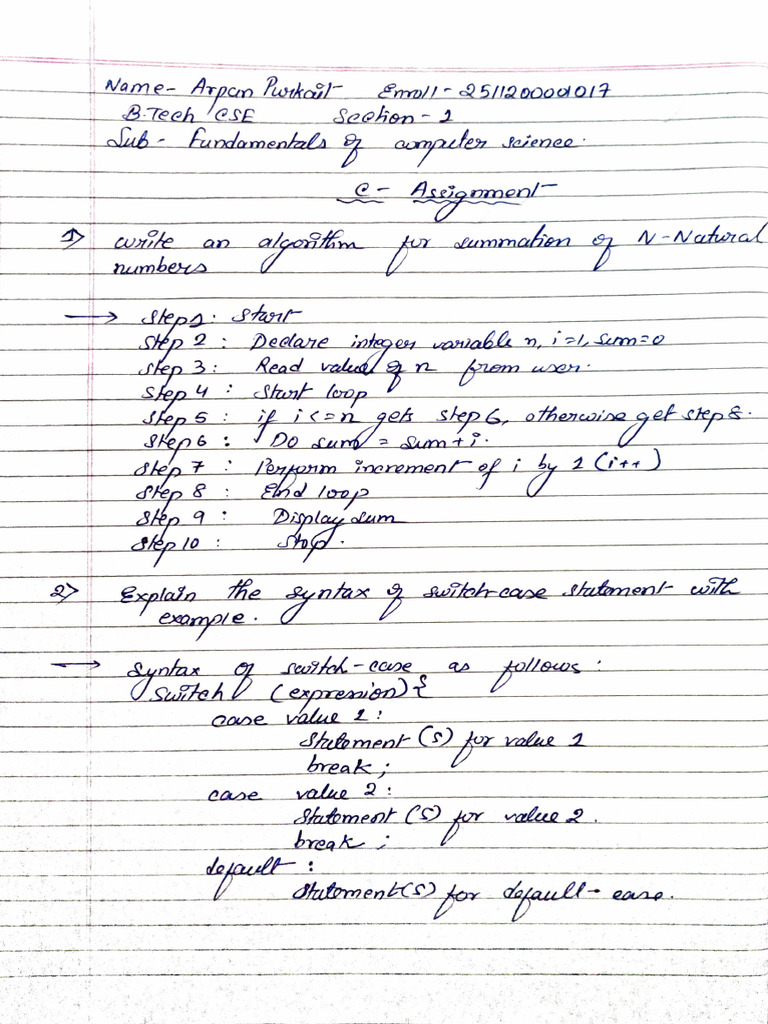 Name- Arpan Purkait Enroll- 251120001017
B.Tech CSE Section - 1
Sub - Fundamentals of computer science.
C - Assignment
1> write an algorithm for summation of N-Natural
numbers
→ Step 1: Start
Step 2 : Declare integer variable n, i=1, sum=0
Step 3 : Read value of n from user.
Step 4 : Start loop
Step 5 : if i <= n gets step 6, otherwise get step 8.
Step 6 : Do sum = sum + i.
Step 7 : Perform increment of i by 1 (i++)
Step 8 : End loop
Step 9 : Display sum
Step 10 : Stop.
2> Explain the syntax of switch-case statement with
example.
→ Syntax of switch-case as follows :
Switch (expression) {
case value 1 :
Statement (s) for value 1
break ;
case value 2 :
Statement (s) for value 2.
break ;
default :
Statement(s) for default- case.